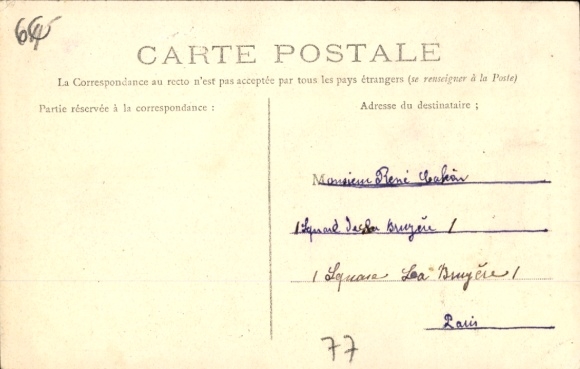 64
CARTE POSTALE
La Correspondance au recto n'est pas acceptée par tous les pays étrangers (se renseigner à la Poste)
Partie réservée à la correspondance :
Adresse du destinataire ;
Monsieur René
1 Square La Bruyère /
/ Square La Bruyère /
Paris
77